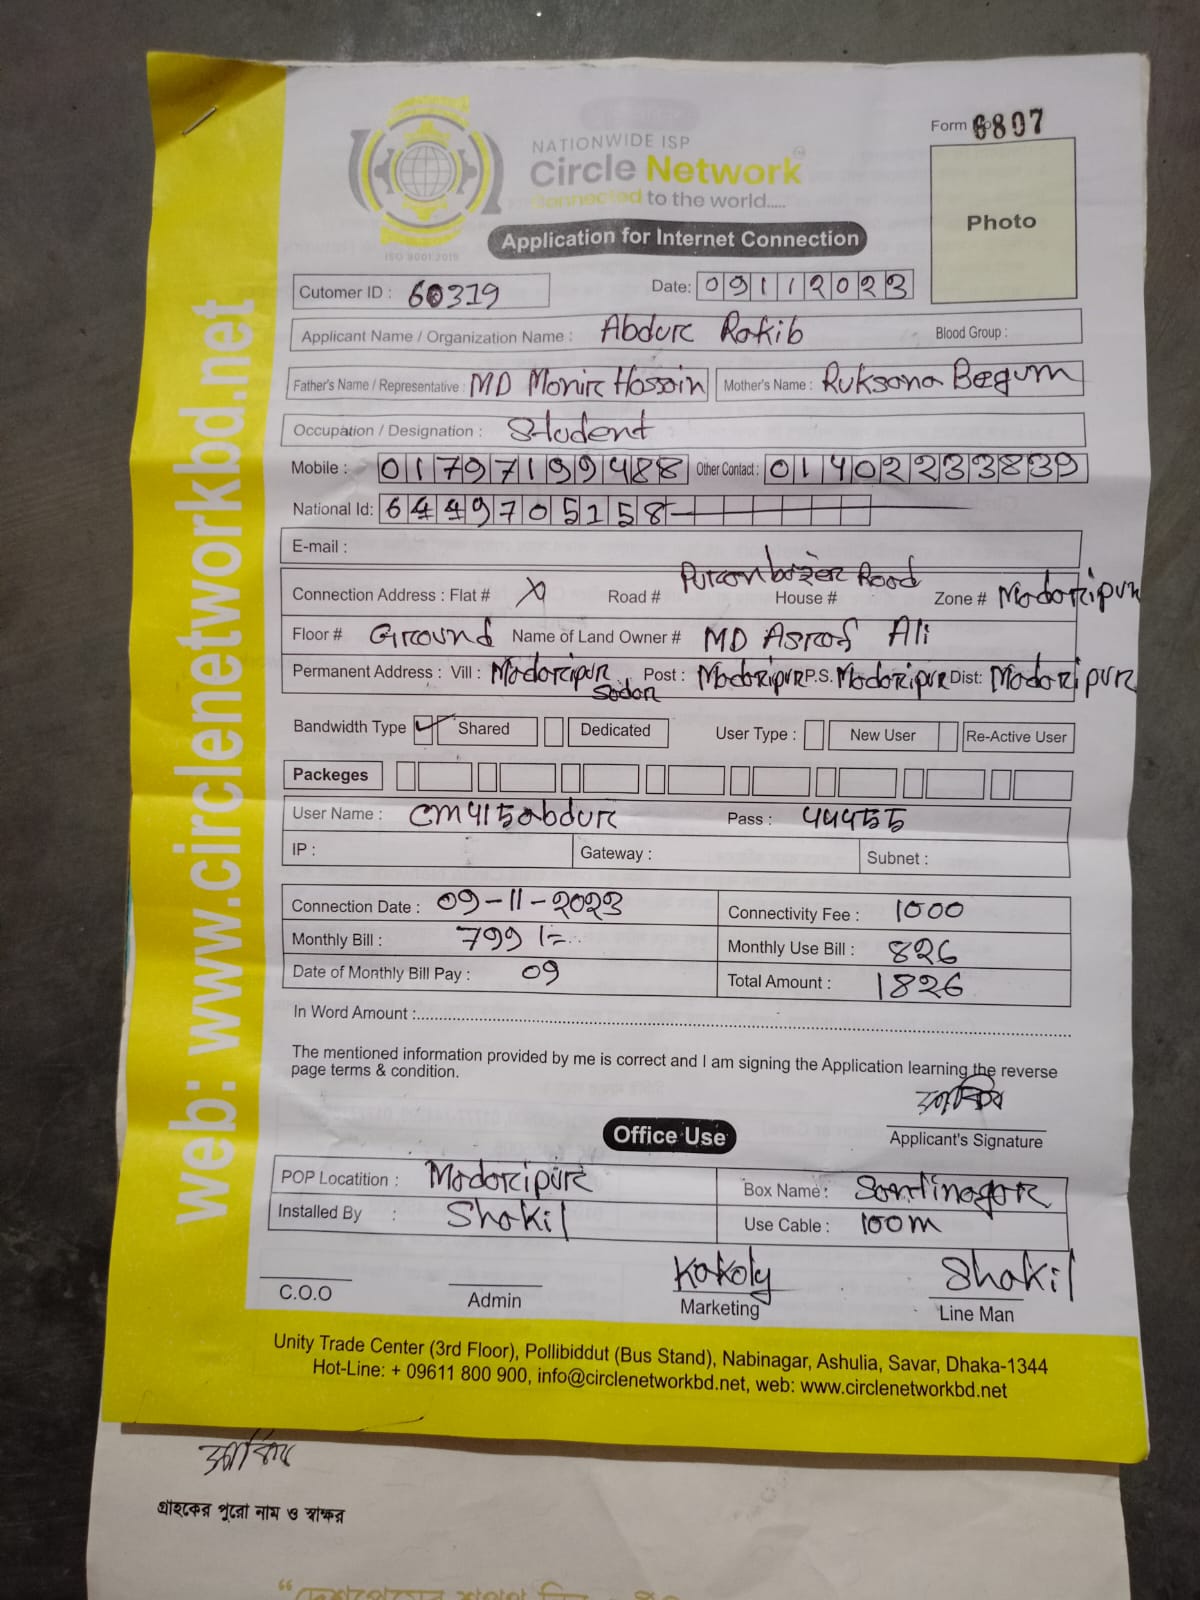 Form No 6807
NATIONWIDE ISP
Circle Network
Connected to the world.....
ISO 9001:2015
Application for Internet Connection
Photo
Cutomer ID : 60319
Date: 09112023
Applicant Name / Organization Name : Abdur Rakib Blood Group :
Father's Name / Representative : MD Monir Hossain Mother's Name : Ruksana Begum
Occupation / Designation : Student
Mobile : 01797199488 Other Contact : 01402233839
National Id: 6449705158
E-mail :
Connection Address : Flat # X Road # Puranbazar Road House # Zone # Madaripur
Floor # Ground Name of Land Owner # MD Asraf Ali
Permanent Address : Vill : Madaripur Sador Post : Madaripur P.S. Madaripur Dist: Madaripur
Bandwidth Type ✓ Shared Dedicated User Type : New User Re-Active User
Packeges
User Name : CM415abdur Pass : 44455
IP : Gateway : Subnet :
Connection Date : 09-11-2023 Connectivity Fee : 1000
Monthly Bill : 799/= Monthly Use Bill : 826
Date of Monthly Bill Pay : 09 Total Amount : 1826
In Word Amount :
The mentioned information provided by me is correct and I am signing the Application learning the reverse
page terms & condition.
Applicant's Signature
Office Use
POP Locatition : Madaripur Box Name : Santinagar
Installed By : Shakil Use Cable : 100m
C.O.O Admin Kakoly Marketing Shakil Line Man
Unity Trade Center (3rd Floor), Pollibiddut (Bus Stand), Nabinagar, Ashulia, Savar, Dhaka-1344
Hot-Line: + 09611 800 900, info@circlenetworkbd.net, web: www.circlenetworkbd.net
web: www.circlenetworkbd.net
গ্রাহকের পুরো নাম ও স্বাক্ষর